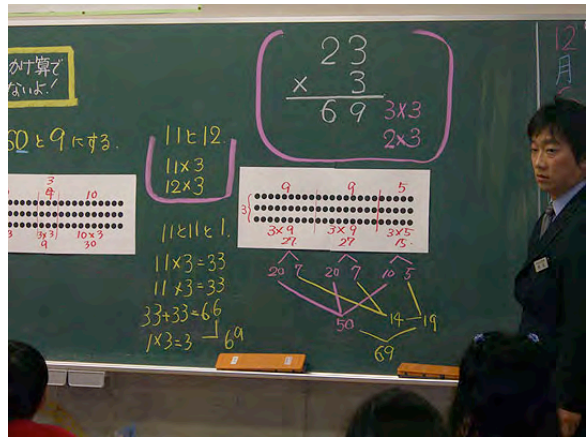 かけ算で
ないよ!
60と9にする.
3
4 10
3×3 10×3
9 30
11と12
11×3
12×3
11と11と1.
11×3=33
11×3=33
33+33=66
1×3=3
69
23
× 3
69
3×3
2×3
9 9 5
3
3×9 3×9 3×5
27 27 15
20 7 20 7 10 5
50 14 19
69
12
月